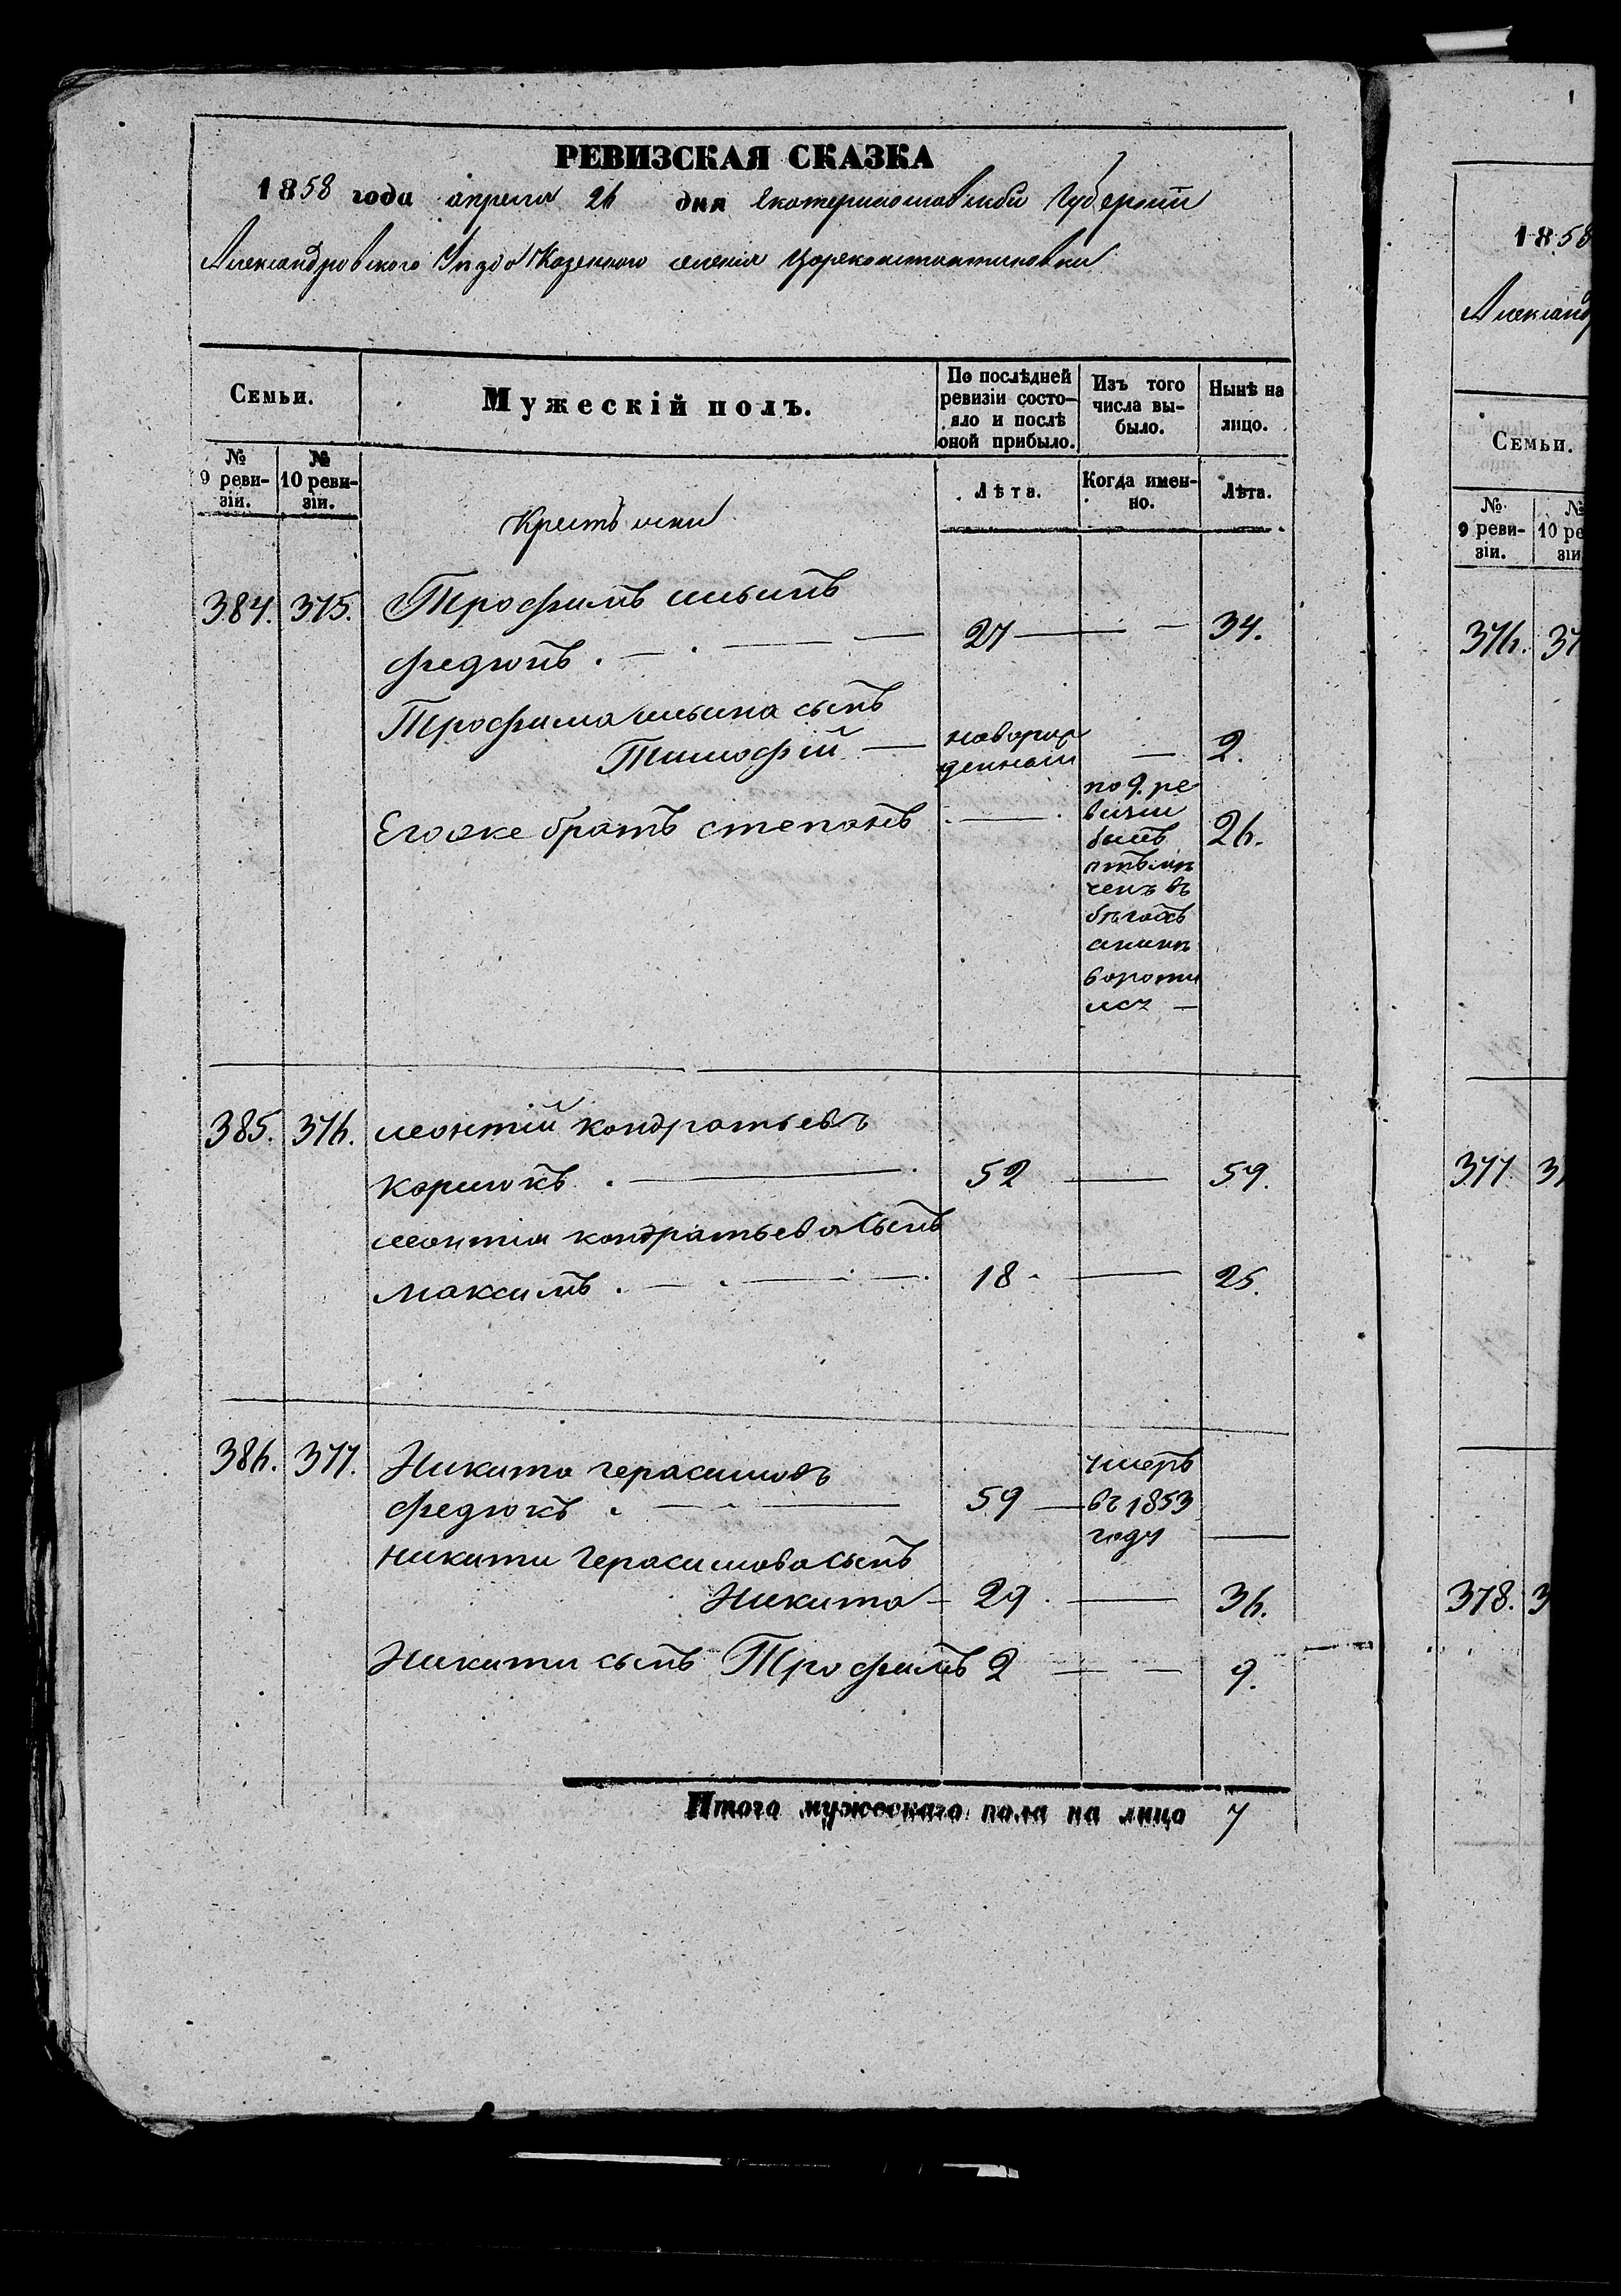 РЕВИЗСКАЯ СКАЗКА
1858 года апреля 26 дня Екатеринославской Губернии
Александровского Уезда Казенного селения Цареконстантиновки
Семьи.
Мужескій полъ.
По послѣдней ревизіи состо-
яло и послѣ
оной прибыло.
Изъ того
числа вы-
было.
Нынѣ на
лицо.
№
9 реви-
зіи.
№
10 реви-
зіи.
Лѣта.
Когда имен-
но.
Лѣта.
Крестьяни
384. 375. Трофимъ ильинъ
федюкъ. 27 34.
Трофима ильина сынъ
Тимофій новорож
денный 2.
Егоже братъ степанъ 26.
по 9. ре
визии
бытъ
отъмѣ
ченъ въ
бѣгахъ
вороти
лся
385. 376. леонтій кондратьевъ
коршокъ. 52 59.
леонтия кондратьева сынъ
максимъ. 18 25.
386. 377. Никита герасимовъ
федюкъ. 59 умеръ
въ 1853
году
никити герасимова сынъ
Никита 29. 36.
Никити сынъ Трофимъ 2 9.
Итого мужескаго пола на лицо 7
1858
Александ
Семьи.
№
9 реви-
зіи.
№
10 ре
зіи
376. 37
377 37
378. 3